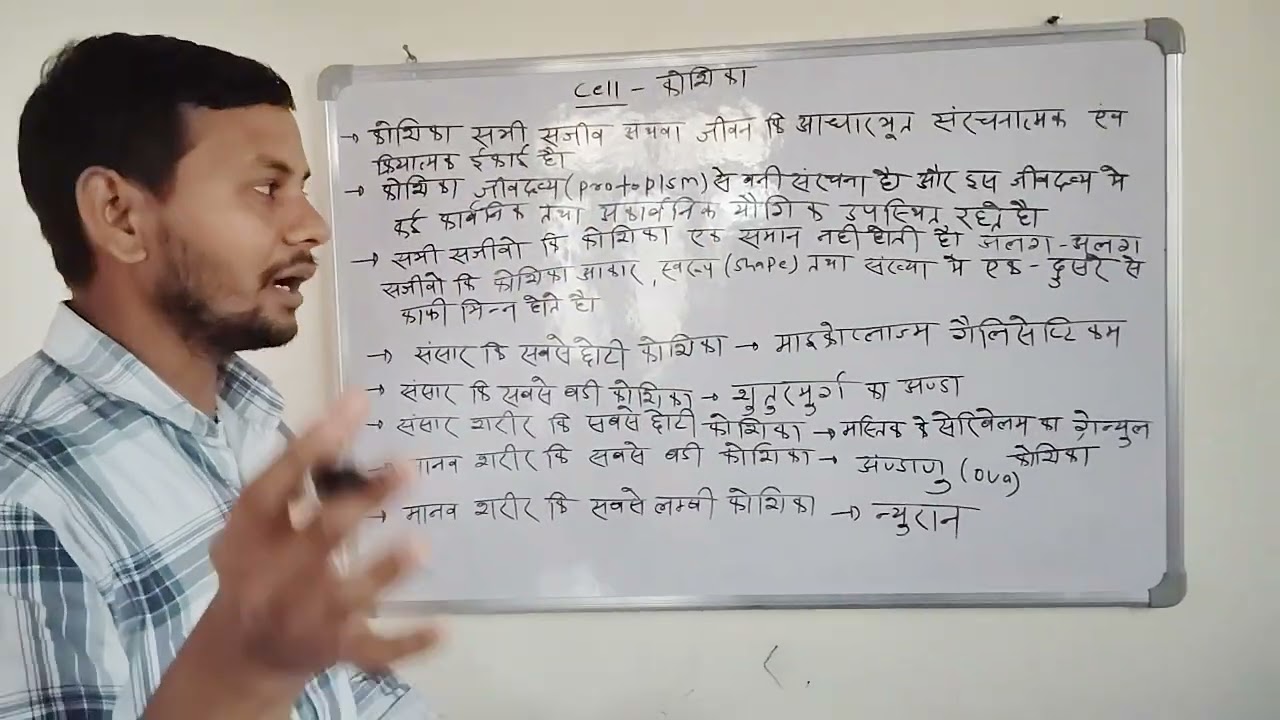 Cell - कोशिका
→ कोशिका सभी सजीव अथवा जीवन कि आधारभूत संरचनात्मक एंव
क्रियात्मक ईकाई है।
→ कोशिका जीवद्रव्य (protoplsm) से बनी संरचना है। और इस जीवद्रव्य मे
कई कार्बनिक तथा अकार्बनिक यौगिक उपस्थित रहते है।
→ सभी सजीवो कि कोशिका एक समान नही होती है। अलग-अलग
सजीवो कि कोशिका आकार, स्वरूप (shape) तथा संख्या मे एक-दुसरे से
काफी भिन्न होते है।
→ संसार कि सबसे छोटी कोशिका → माइकोप्लाज्म गैलिसेप्टिकम
→ संसार कि सबसे बडी कोशिका → शुतुरमुर्ग का अण्डा
→ संसार शरीर कि सबसे छोटी कोशिका → मस्तिक के सेरिबेलम का ग्रेन्युल
कोशिका
मानव शरीर कि सबसे बडी कोशिका → अण्डाणु (ova)
→ मानव शरीर कि सबसे लम्बी कोशिका → न्युरान